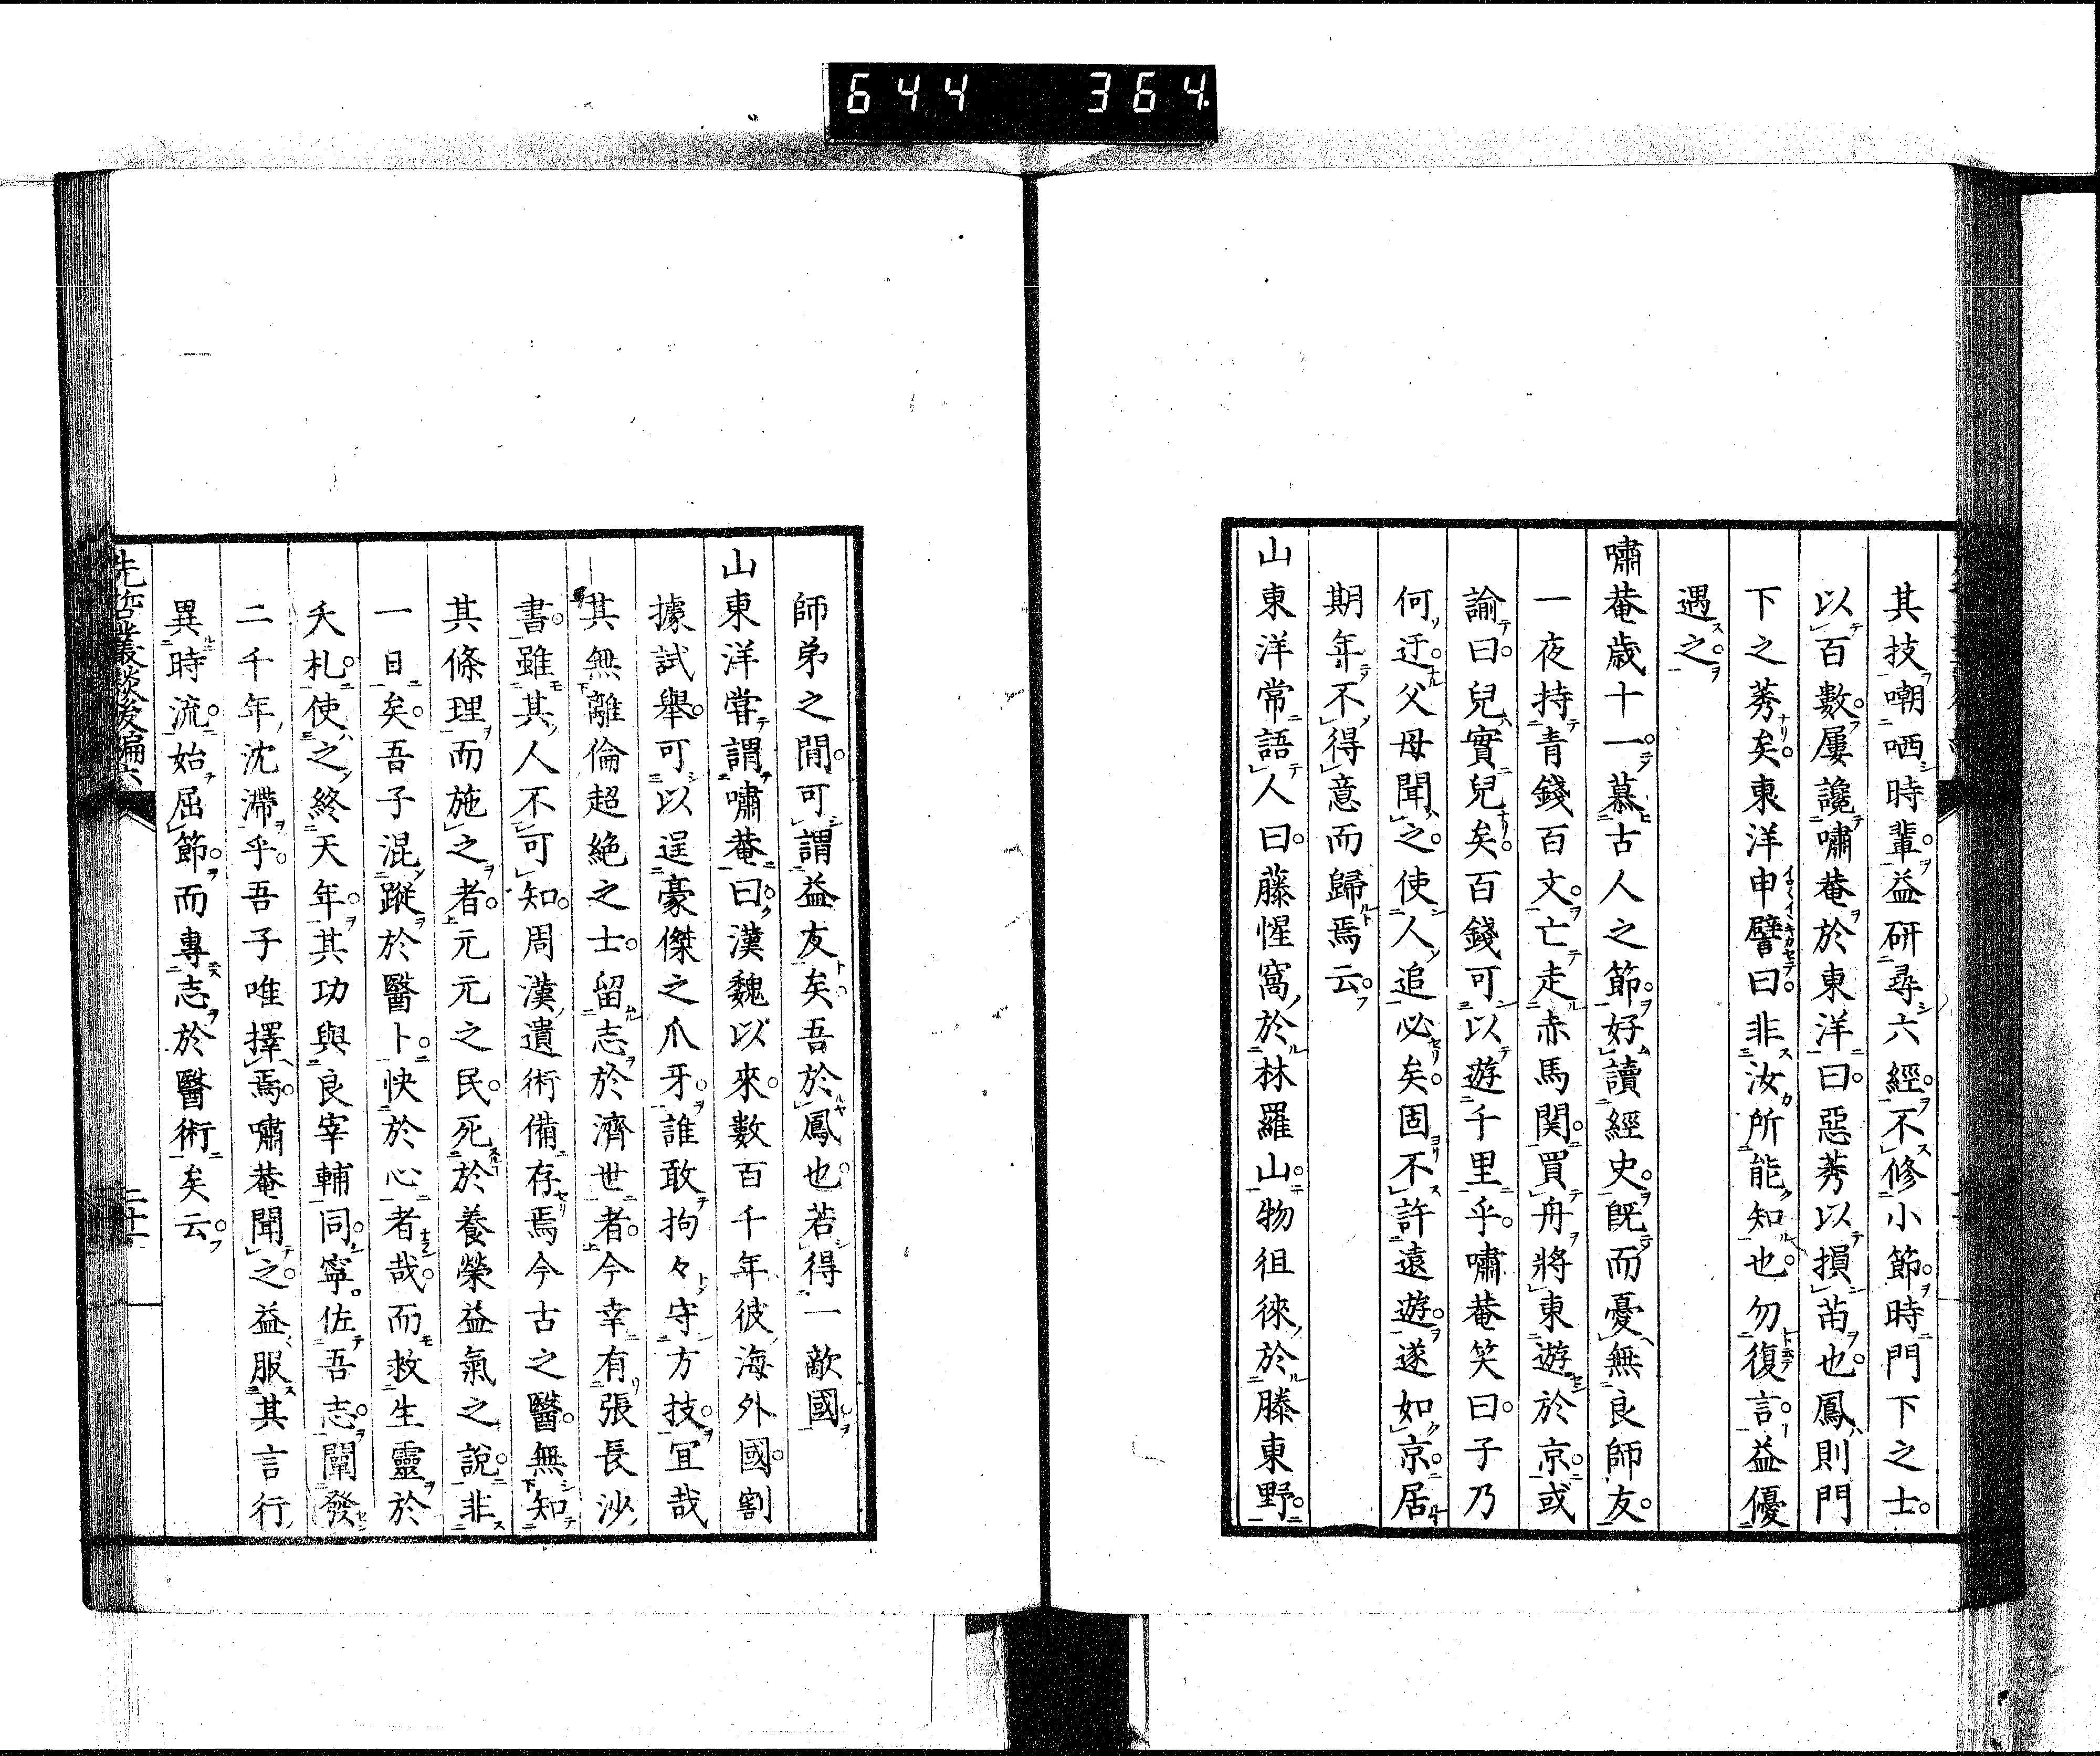 644 364
其技嘲哂時輩益研尋六經不修小節時門下之士
以百數屢讒嘯菴於東洋曰惡莠以損苗也鳳則門
下之莠矣東洋申譬曰非汝所能知也勿復言益優
遇之
嘯菴歲十一慕古人之節好讀經史既而憂無良師友
一夜持青錢百文亡走赤馬関買舟將東遊於京或
諭曰兒實兒矣百錢可以遊千里乎嘯菴笑曰子乃
何迂父母聞之使人追必矣固不許遠遊遂如京居
期年不得意而歸焉云
山東洋常語人曰藤惺窩於林羅山物徂徠於滕東野
師弟之間可謂益友矣吾於鳳也若得一敵國
山東洋嘗謂嘯菴曰漢魏以來數百千年彼海外國割
據試舉可以逞豪傑之爪牙誰敢拘々守方技宜哉
其無離倫超絶之士留志於濟世者今幸有張長沙
書雖其人不可知周漢遺術備存焉今古之醫無知
其條理而施之者元元之民死於養榮益氣之說非
一日矣吾子混蹤於醫卜快於心者哉而救生靈於
夭札使之終天年其功與良宰輔同寧佐吾志闡發
二千年沈滯乎吾子唯擇焉嘯菴聞之益服其言行
異時流始屈節而專志於醫術矣云
先哲叢談後編六
二十二